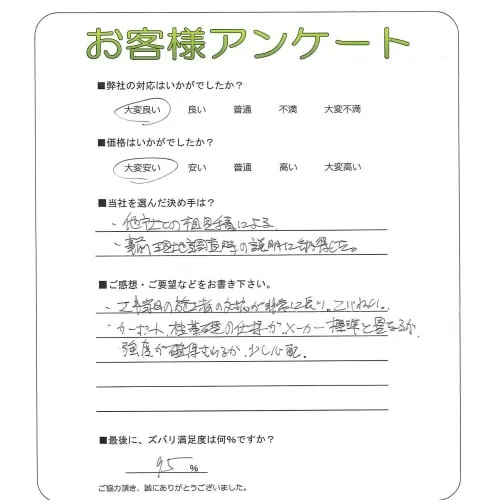 お客様アンケート
■弊社の対応はいかがでしたか？
大変良い 良い 普通 不満 大変不満
■価格はいかがでしたか？
大変安い 安い 普通 高い 大変高い
■当社を選んだ決め手は？
・他社との相見積による。
・事前現地調査時の説明に納得した。
■ご感想・ご要望などをお書き下さい。
・工事当日の施工者の対応が非常に良い。ていねい。
・カーポート、柱基礎の仕様が、メーカー標準と異なるが、
強度が確保されるか、少し心配。
■最後に、ズバリ満足度は何％ですか？
95 ％
ご協力頂き、誠にありがとうございました。